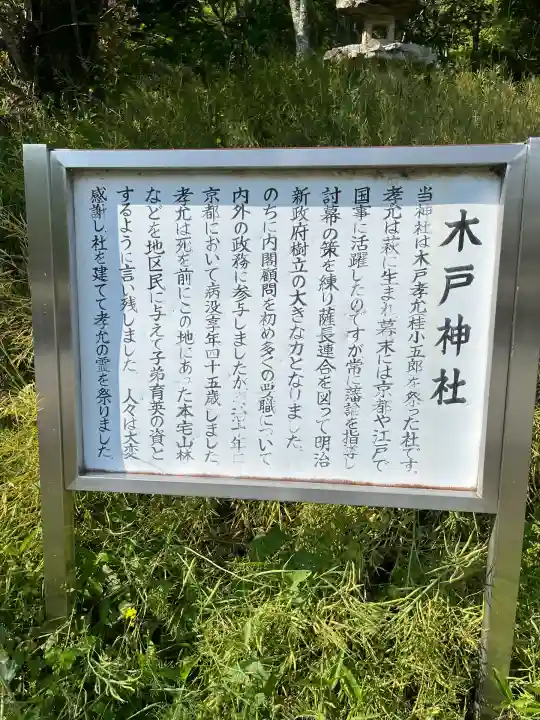 木戸神社
当神社は木戸孝允桂小五郎を祭った社です。
孝允は萩に生まれ幕末には京都や江戸で
国事に活躍したのですが常に藩論を指導し
討幕の策を練り薩長連合を図って明治
新政府樹立の大きな力となりました。
のちに内閣顧問を初め多くの要職について
内外の政務に参与しましたが 年に
京都において病没享年四十五歳しました
孝允は死を前にこの地にあった本宅山林
などを地区民に与えて子弟育英の資と
するように言い残しました 人々は大変
感謝し社を建てて孝允の霊を祭りました